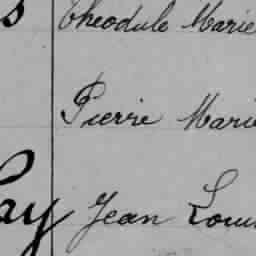 Theodule Marie
Pierre Marie
ay Jean Louis